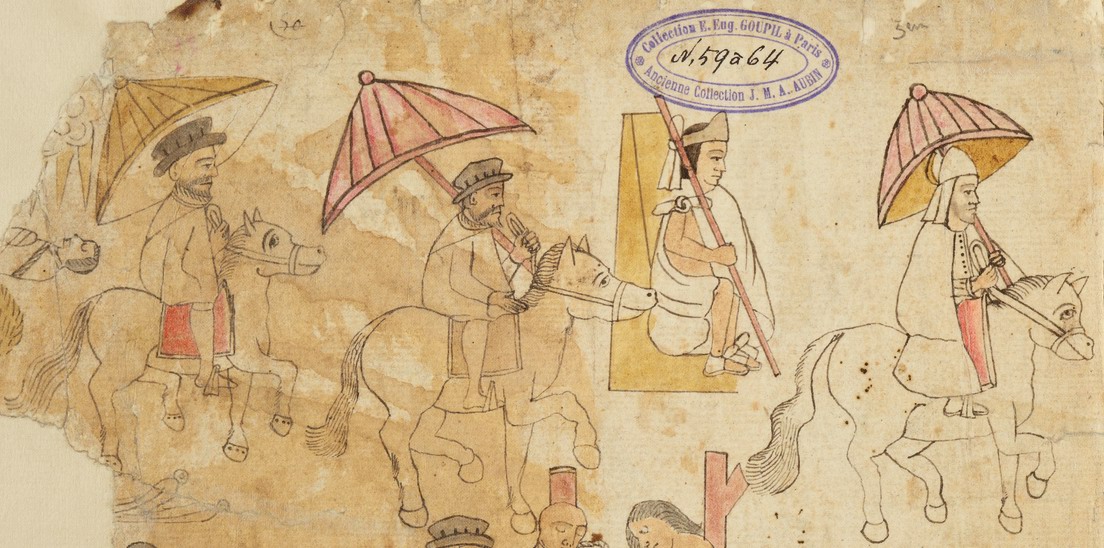 Collection E. Eug. GOUPIL à Paris
N. 59 à 64
Ancienne Collection J. M. A. AUBIN